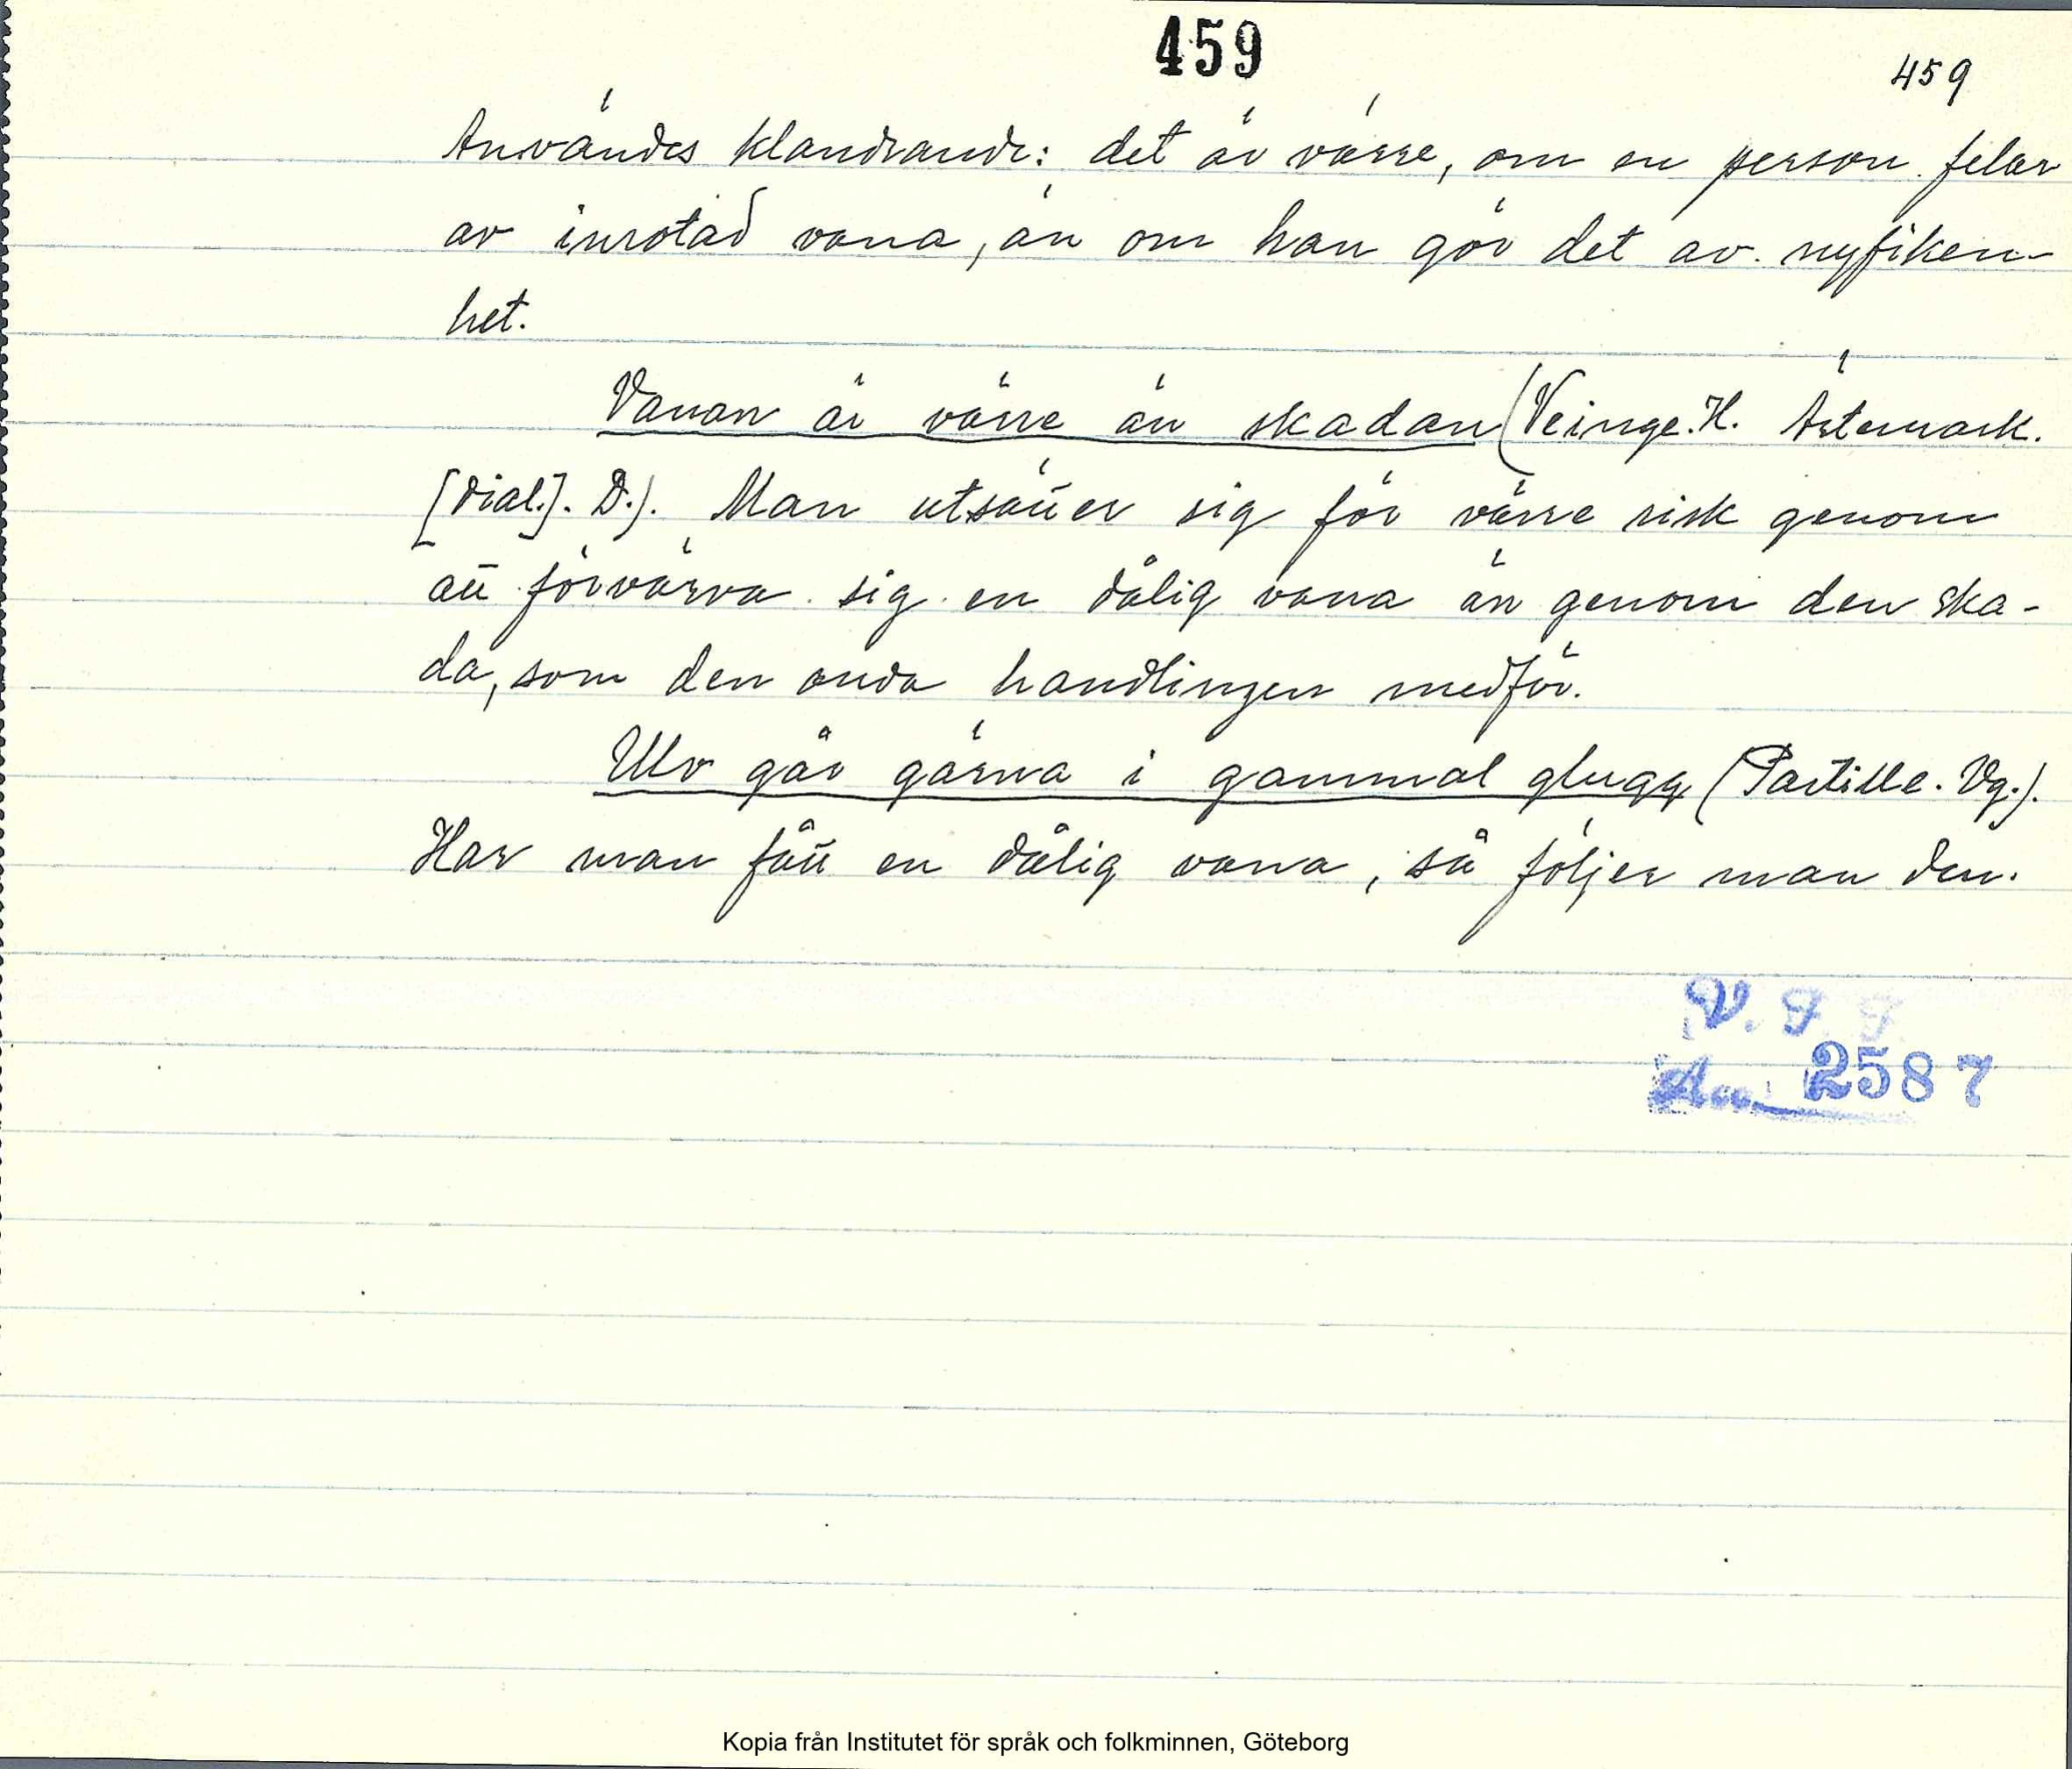 459
459
Användes klandrande: det är värre, om en person felar
av inrotad vana, än om han gör det av nyfiken-
het.
Vanan är värre än skadan (Veinge. H. Ärtemark.
[dial.]. D.). Man utsätter sig för värre risk genom
att förvärva sig en dålig vana än genom den ska-
da, som den onda handlingen medför.
Ulv går gärna i gammal glugg (Partille. Vg.).
Har man fått en dålig vana, så följer man den.
V. 
2587
Kopia från Institutet för språk och folkminnen, Göteborg